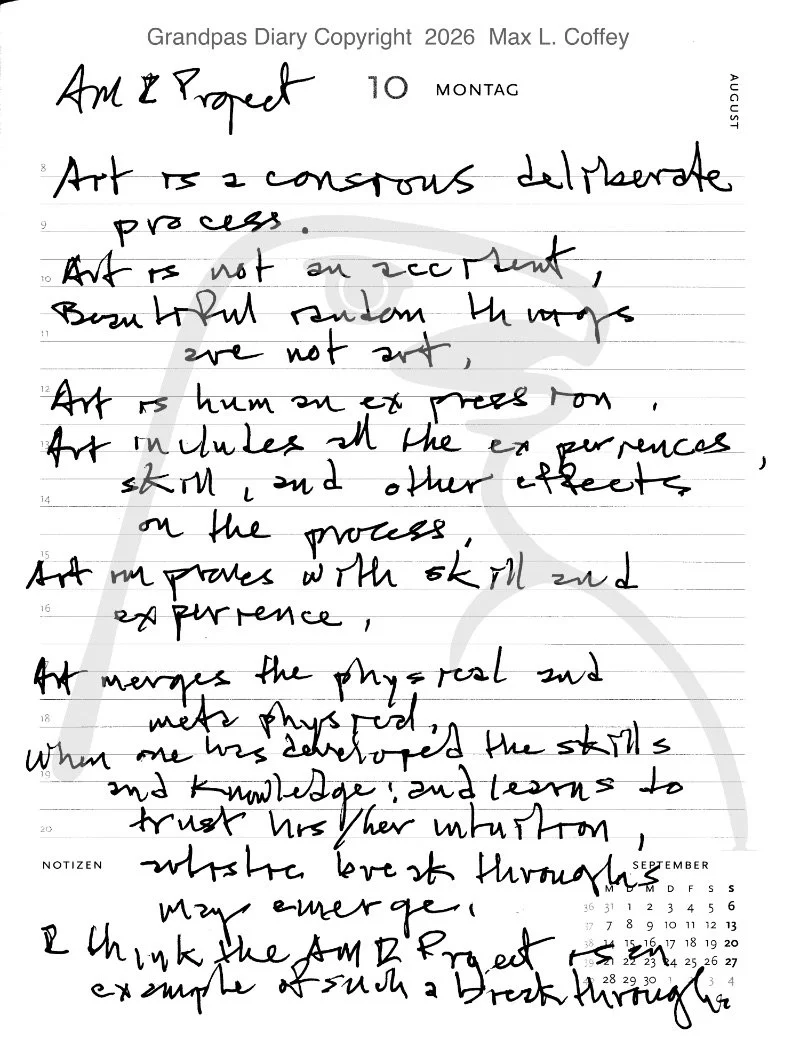 Grandpas Diary Copyright 2026 Max L. Coffey
AM I Project 10 MONTAG
AUGUST
8 Art is a conscious deliberate
9 process.
10 Art is not an accident,
Beautiful random things
11 are not art,
12 Art is human expression.
13 Art includes all the experiences,
skill, and other effects
14 on the process,
15 Art improves with skill and
16 experience,
Art merges the physical and
18 metaphysical,
When one has developed the skills
19 and knowledge, and learns to
20 trust his/her intuition,
NOTIZEN artistic breakthroughs SEPTEMBER
M D M D F S S
may emerge.
36 31 1 2 3 4 5 6
37 7 8 9 10 11 12 13
I think the AM I Project is an
38 14 15 16 17 18 19 20
39 21 22 23 24 25 26 27
example of such a breakthrough.
28 29 30 1 3 4